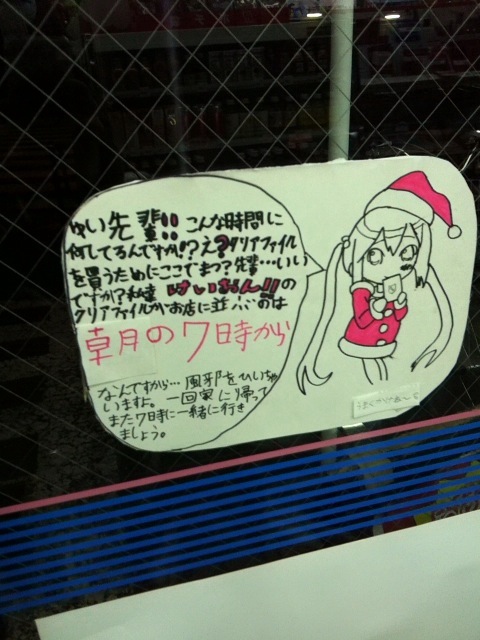 ゆい先輩!! こんな時間に
何してるんですか!? え?クリアファイル
を買うためにここでまつ?先輩…いい
ですか?私達 けいおん!!の
クリアファイルがお店に並ぶのは
朝の7時から
なんですから… 風邪をひいちゃ
いますよ。一回家に帰って
また7時に一緒に行き
ましょう。